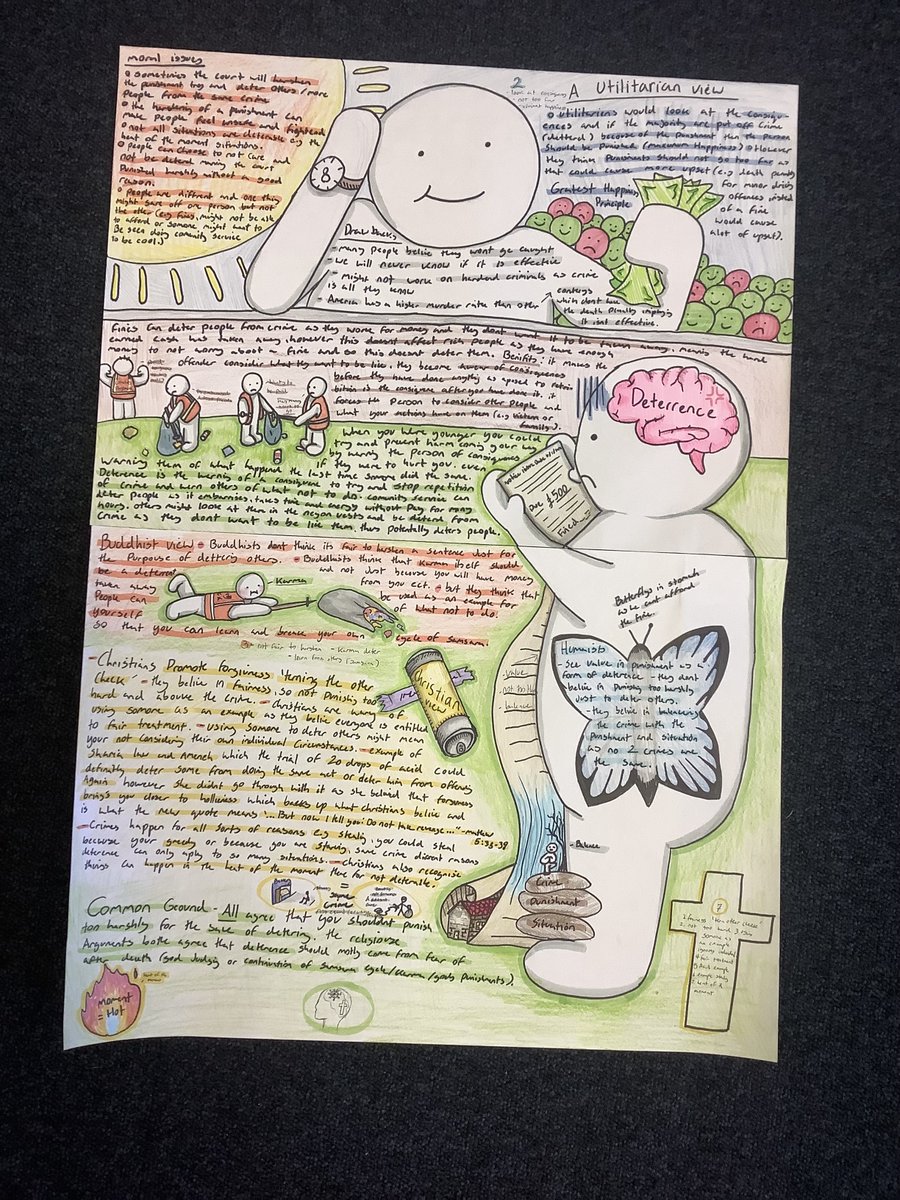 moral issues
sometimes the court will hursten
the punishment to try and deter others/more
people from the same crime
the hurstering of a punishment can
make people feel unsafe and frightend
not all situations are deterable e.g the
heat of the moment situations.
people can choose to not care and
not be deterd making the court
punished harshly without a good
reason.
people are diffrent and one thing
might scare off one person but not
the other (e.g fines, might not be able
to afford or someone might want to
be seen doing comunity service
to be cool.)
8
2
A Utilitarian view
Utilitarians would look at the consiqu-
ences and if the majority are put off crime
(deterred) because of the punishment then the person
should be punished (maximum Happiness) However
they think punishments should not go too far as
that could cause more upset (e.g. death penalty
for minor driving
offences insted
of a fine
would cause
alot of upset).
Gratest Happiness
Principle
Draw backs
- many people belive they wont ge caught
- we will never know if it is effective
- might not work on hardend criminals as crime
is all they know
- America has a higher murder rate than other
conterys
which dont have
the death penalty implying
it isnt effective.
Fines can deter people from crime as they work for money and they dont want it to be taken away, means the hard
earned cash was taken away, however this doesnt affect rich people as they have enough
money to not worry about a fine and so this doesnt deter them. Benefits: it makes the
offender consider what they want to be like, they become awear of consequences
before they have done anything as oposed to retrin
bition is the consiqunce after you have done it. it
forces the person to consider other people and
what your actions have on them (e.g victem or
family).
Deterrence
When you were younger you could
try and prevent harm coming your way
by warnig the person of consequences
if they were to hurt you. even
warning them of what happend the last time someone did the same.
Deterence is the warnig of a consiqunce to try and stop repetition
of crime and worn others of what not to do. comunity service can
deter people as it embarrises, takes time and energy without pay for many
hours. others might look at them in the neyon vests and be deterd from
crime as they dont want to be like them, thus potentially deters people.
Due £500
Fined
Buddhist view - Buddhists dont think its fair to hursten a sentence Just for
the Purpouse of detering others. - Buddhists think that Karma itself should
be a deterent
and not Just because you will have money
taken away
from you ect. - but they think that
People can
be used as an exsample for
yourself
of what not to do.
so that you can learn and breack your own cycle of samsara.
Karma
not fair to hursten - karma deter
- learn from others (samsara)
Butterflys in stomach
as he cant afford
the fine.
Humanists
- See value in punishment as a
form of deterence they dont
belive in Punishing too harshly
Just to deter others.
- they belive in balencing
the crime with the
Punishment and situation
as no 2 crimes are
the same.
value
not too harsh
balence
- Christians Promote forgivness 'turning the other
cheek' - they belive in fairness, so not Punishing too
hard and abouve the crime. - christians are wary of
using someone as an example as they belive everyone is entitled
to fair treatment. - using someone to deter others might mean
your not considering their own individual circumstances. - exsample of
Sharia law and Ameneh which the trial of 20 drops of acid could
definatly deter some from doing the same act or deter him from offending
Again however she didnt go through with it as she belived that forgivness
bring's you closer to holliness which backs up what christians belive and
is what the new quote means '... But now I tell you: Do not take revenge...' - mathew
5:38-39
- Crimes happen for all sorts of reasons e.g stealing, you could steal
because your greedy or because you are starving, same crime diffrent reasons
deterence can only aply to so many situations. - christians also recognise
things can happen in the heat of the moment there for not deterable.
Christian
view
=
same
crime
- Balence
Crime
Punishment
Situation
Common Ground - All agree that you shouldnt punish
too harshly for the sake of detering. the religiouse
Arguments bothe agree that deterence should mostly come from fear of
after death (god Judging or contination of samsara cycle/karma/gods punishments).
heat of the
moment
moment
= Hot
7